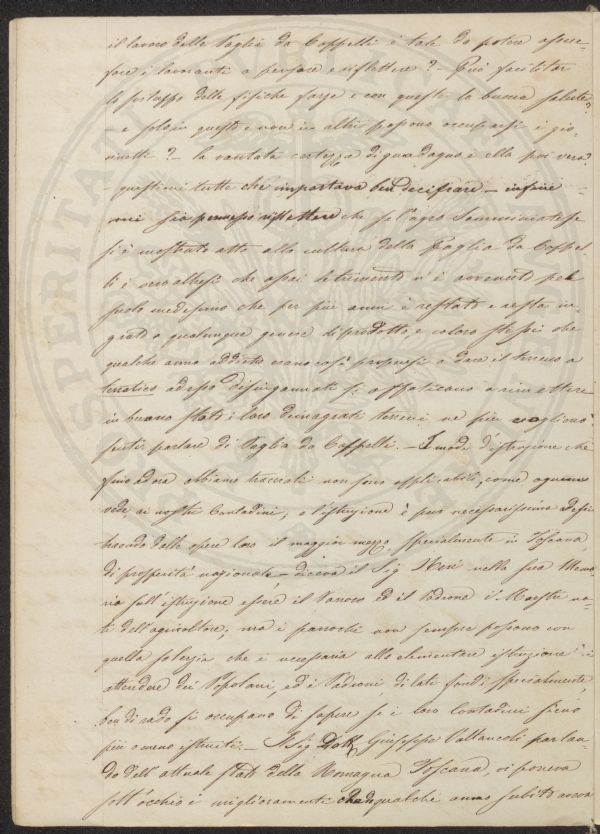 il lavoro della Paglia da Cappelli è tale da potere assue-
fare i lavoranti a pensare e riflettere? - Può facilitar
lo sviluppo delle fisiche forze e con queste la buona salute?
- e solo in questo e non in altri possono occuparsi i gio-
vinetti? - la vantata certezza di guadagno è ella poi vera?
- questioni tutte che importava ben decifrare - infine
mi sia permesso riflettere che se l'agro Samminiatese
si è mostrato atto alla cultura della Paglia da Cappel-
li; è vero altresì che assai detrimento n'è avvenuto pel
suolo medesimo che per più anni è restato e resta in-
grato a qualunque genere di prodotto, e coloro stessi che
qualche anno addietro erano così propensi a dare il terreno a
terratico adesso disingannati si affaticano a rimettere
in buono stato i loro dimagrati terreni ne più vogliono
sentir parlare di Paglia da Cappelli. - I modi d'istruzione che
fino ad ora abbiamo tracciati non sono applicabili, come ognuno
vede ai nostri Contadini, e l'istruzione è pur necessarissima
traendo dalle opere loro il maggior mezzo, specialmente in Toscana,
di prosperità nazionale, - diceva il Sig. Neri nella sua Memo-
ria sull'istruzione essere il Parroco ed il Padrone i Maestri na-
ti dell'agricoltore; ma i parrochi non sempre possono con
quella solerzia che è necessaria alla elementare istruzione
attendere dei Popolani, ed i Padroni di lati fondi specialmente,
ben di rado si occupano di sapere se i loro Contadini sieno
più o meno istruiti. - Il Sig. Dott. Giuseppe Vallancoli parlan-
do dell'attuale stato della Romagna Toscana, ci poneva
sott'occhio i miglioramenti che da qualche anno subito aveva